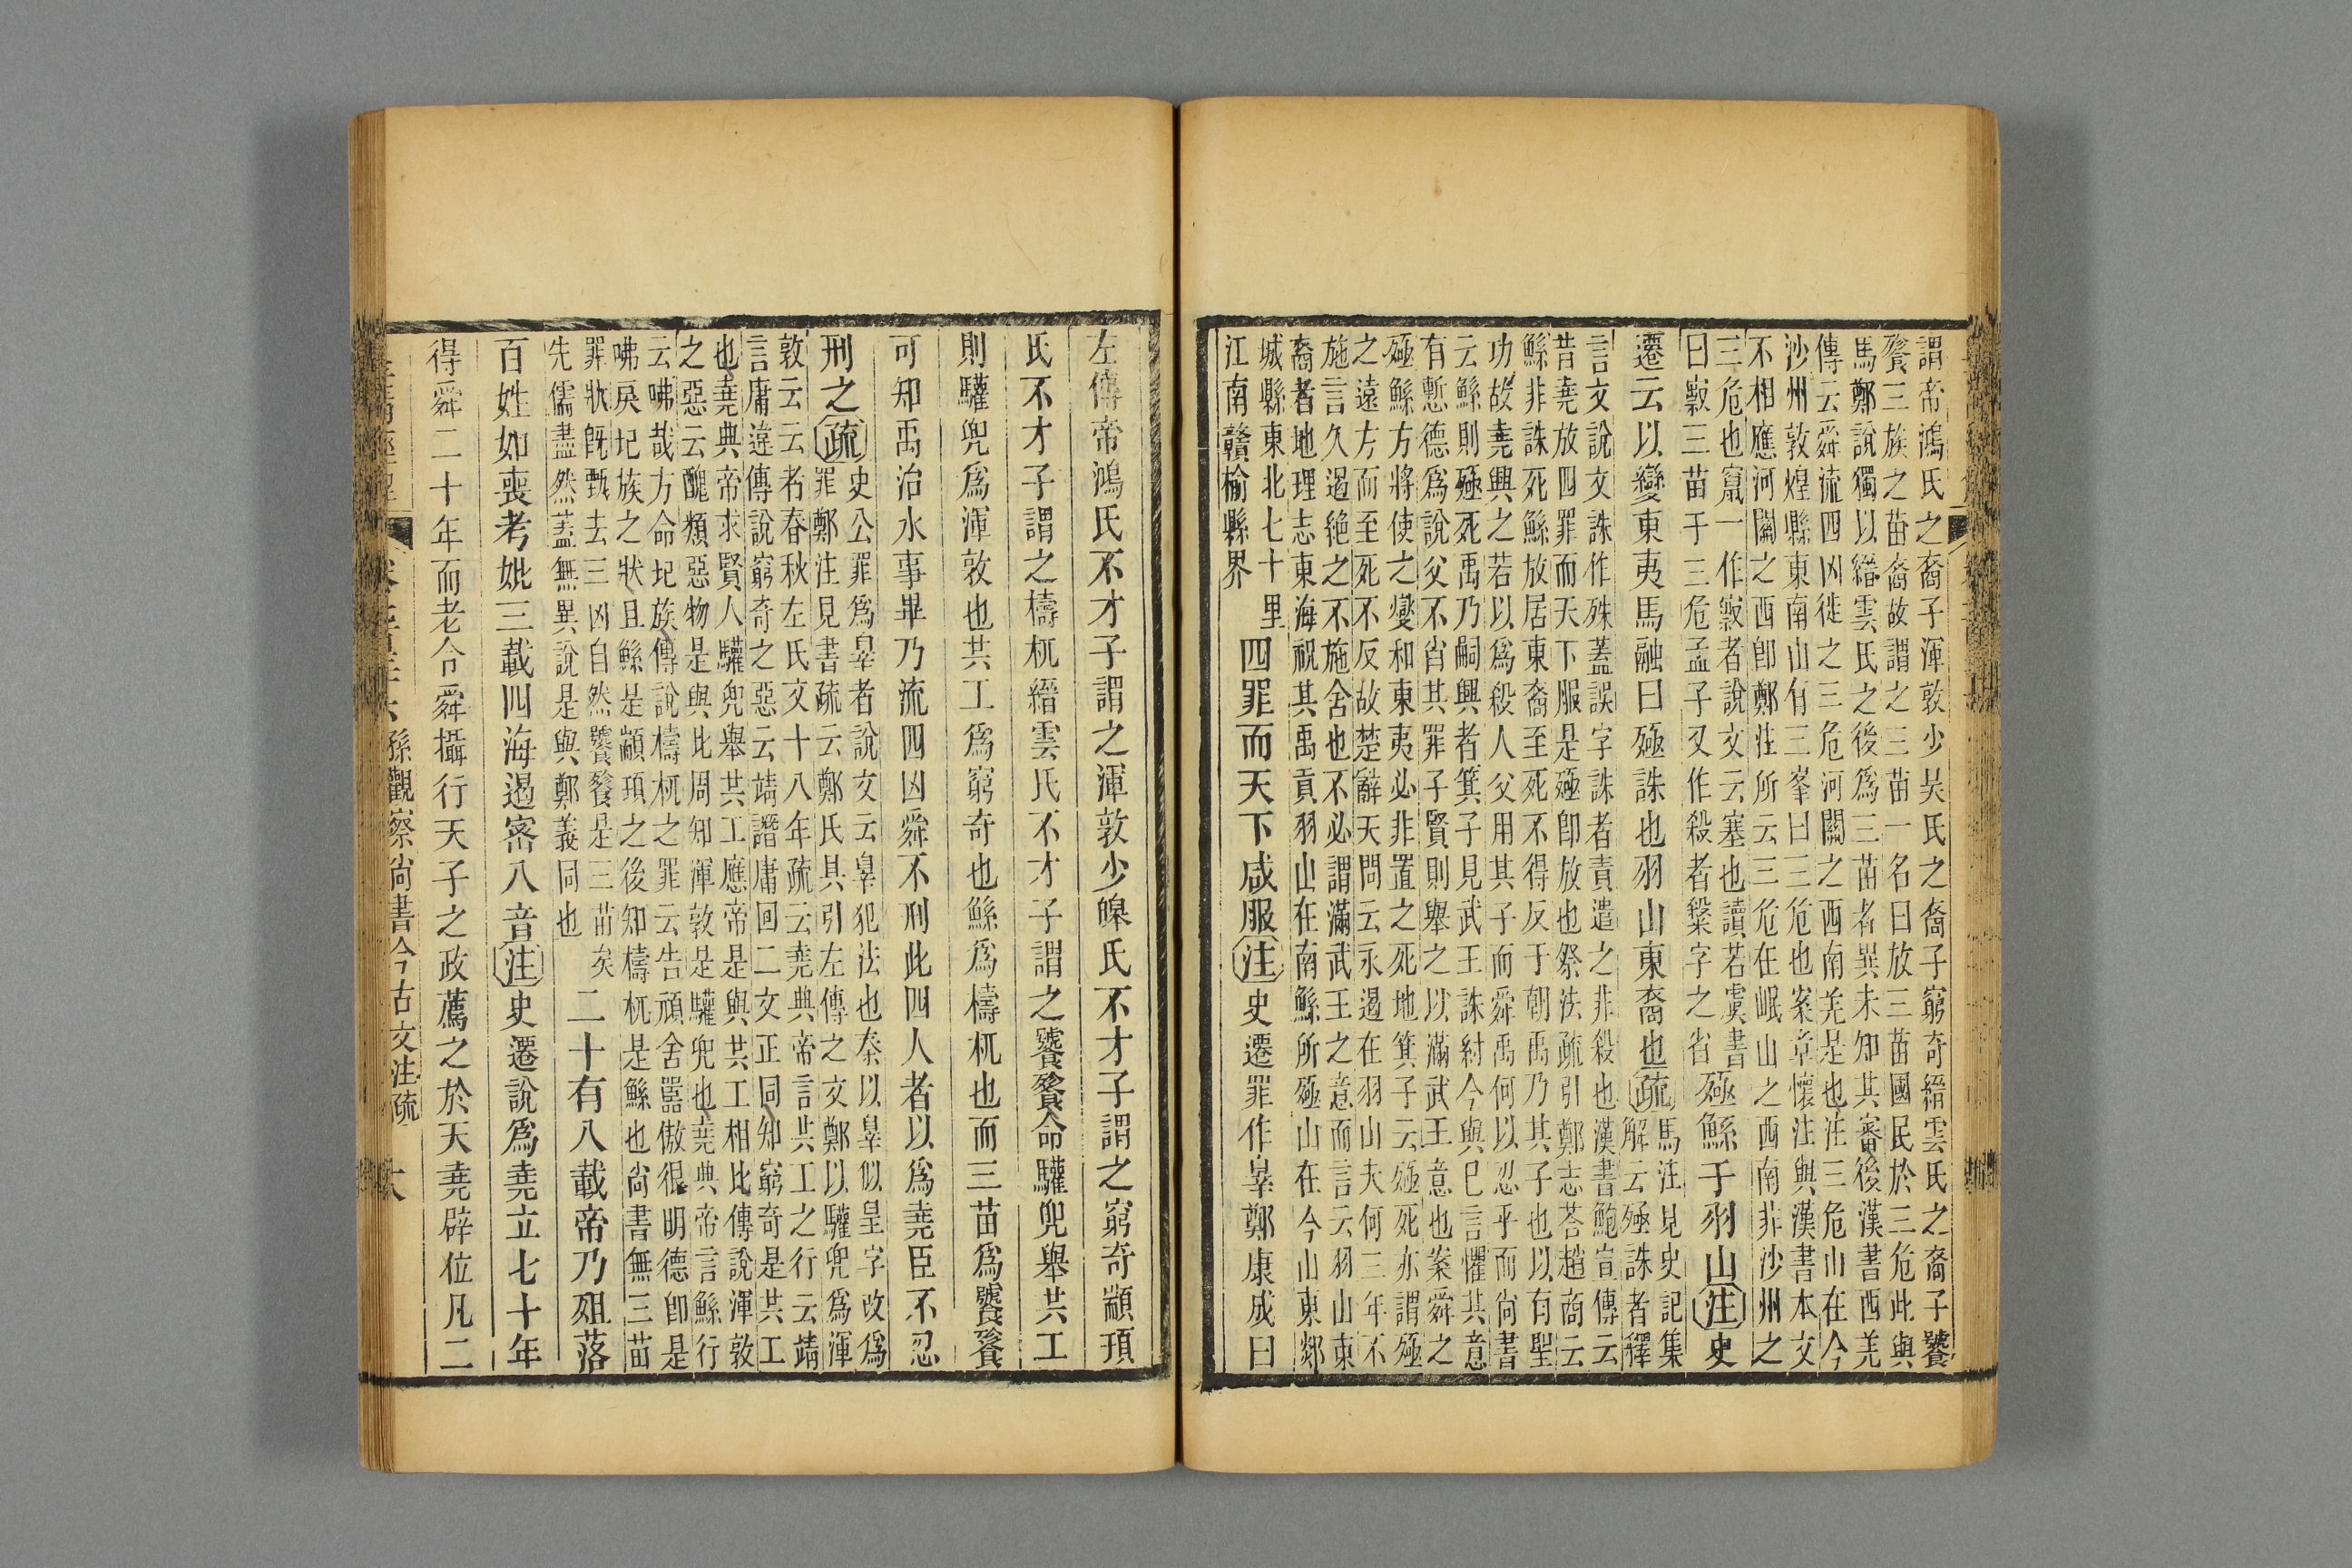 謂帝鴻氏之裔子渾敦少昊氏之裔子窮奇縉雲氏之裔子饕
餮三族之苗裔故謂之三苗一名曰放三苗國民於三危此與
馬鄭說獨以縉雲氏之後爲三苗者異未知其審後漢書西羌
傳云舜流四凶徙之三危河關之西南羌是也注三危山在今
沙州敦煌縣東南山有三峯曰三危也案章懷注與漢書本文
不相應河關之西卽鄭注所云三危在岷山之西南非沙州之
三危也竄一作㝮者說文云塞也讀若虞書
曰㝮三苗于三危孟子又作殺者䊝字之省
殛鯀于羽山注史
遷云以變東夷馬融曰殛誅也羽山東裔也疏
馬注見史記集
解云殛誅者釋
言文說文誅作殊蓋誤字誅者責遣之非殺也漢書鮑宣傳云
昔堯放四罪而天下服是殛卽放也祭法疏引鄭志荅趙商云
鯀非誅死鯀放居東裔至死不得反于朝禹乃其子也以有聖
功故堯興之若以爲殺人父用其子而舜禹何以忍乎而尙書
云鯀則殛死禹乃嗣興者箕子見武王誅紂今與已言懼其意
有慙德爲說父不肖其罪子賢則舉之以滿武王意也案舜之
殛鯀方將使之變和東夷必非置之死地箕子云殛死亦謂殛
之遠方而至死不反故楚辭天問云永遏在羽山夫何三年不
施言久遏絕之不施舍也不必謂滿武王之意而言云羽山東
裔者地理志東海祝其禹貢羽山在南鯀所殛山在今山東郯
城縣東北七十里
江南贛榆縣界
四罪而天下咸服注史遷罪作辠鄭康成曰
左傳帝鴻氏不才子謂之渾敦少皞氏不才子謂之窮奇顓頊
氏不才子謂之檮杌縉雲氏不才子謂之饕餮命驩兜舉共工
則驩兜爲渾敦也共工爲窮奇也鯀爲檮杌也而三苗爲饕餮
可知禹治水事畢乃流四凶舜不刑此四人者以爲堯臣不忍
刑之疏
史公罪爲辠者說文云辠犯法也秦以辠似皇字改爲
罪鄭注見書疏云鄭氏具引左傳之文鄭以驩兜爲渾
敦云云者春秋左氏文十八年疏云堯典帝言共工之行云靖
言庸違傳說窮奇之惡云靖譖庸回二文正同知窮奇是共工
也堯典帝求賢人驩兜舉共工應帝是與共工相比傳說渾敦
之惡云醜類惡物是與比周知渾敦是驩兜也堯典帝言鯀行
云咈哉方命圮族傳說檮杌之罪云告頑舍嚚傲很明德卽是
咈戾圮族之狀且鯀是顓頊之後知檮杌是鯀也尙書無三苗
罪狀旣甄去三凶自然饕餮是三苗矣
先儒盡然葢無異說是與鄭義同也
二十有八載帝乃殂落
百姓如喪考妣三載四海遏密八音注史遷說爲堯立七十年
得舜二十年而老令舜攝行天子之政薦之於天堯辟位凡二
孫觀察尙書今古文注疏